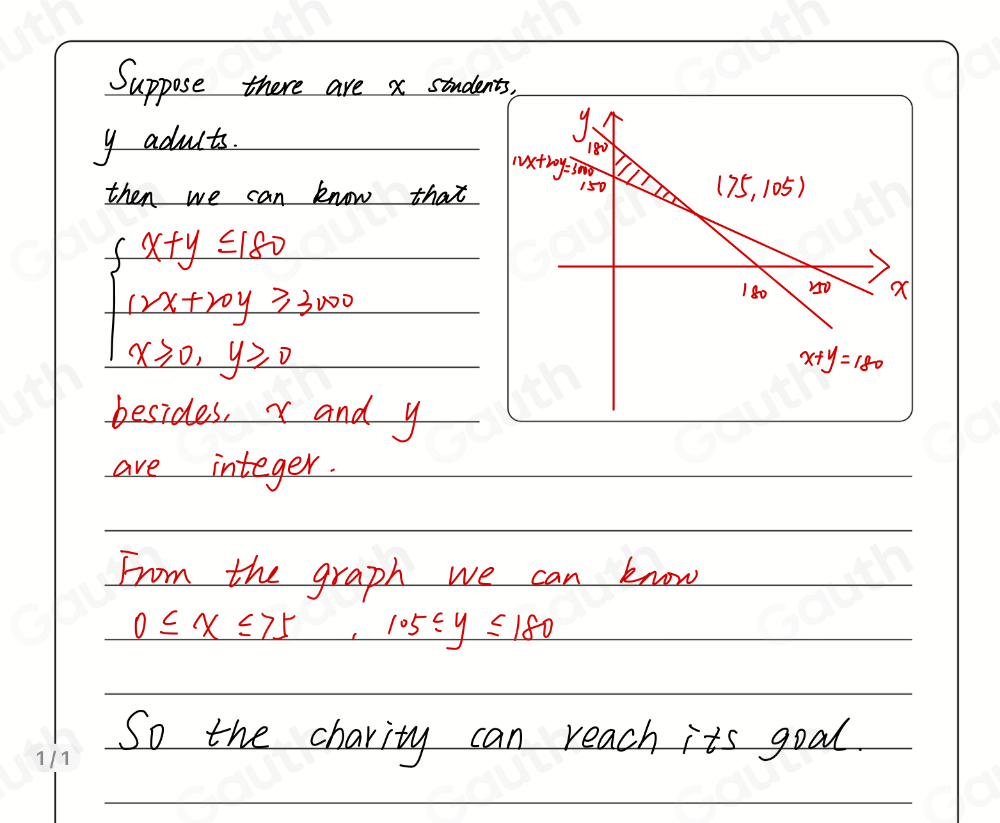 Suppose there are x students,
y adults.
then we can know that
x+y ≤180
12x+20y ≥3000
x≥0, y≥0
besides, x and y
are integer.
y
180
12x+20y=3000
150
(75,105)
180
250
x
x+y=180
From the graph we can know
0≤x≤75 , 105≤y≤180
So the charity can reach its goal.
1/1
Gauth